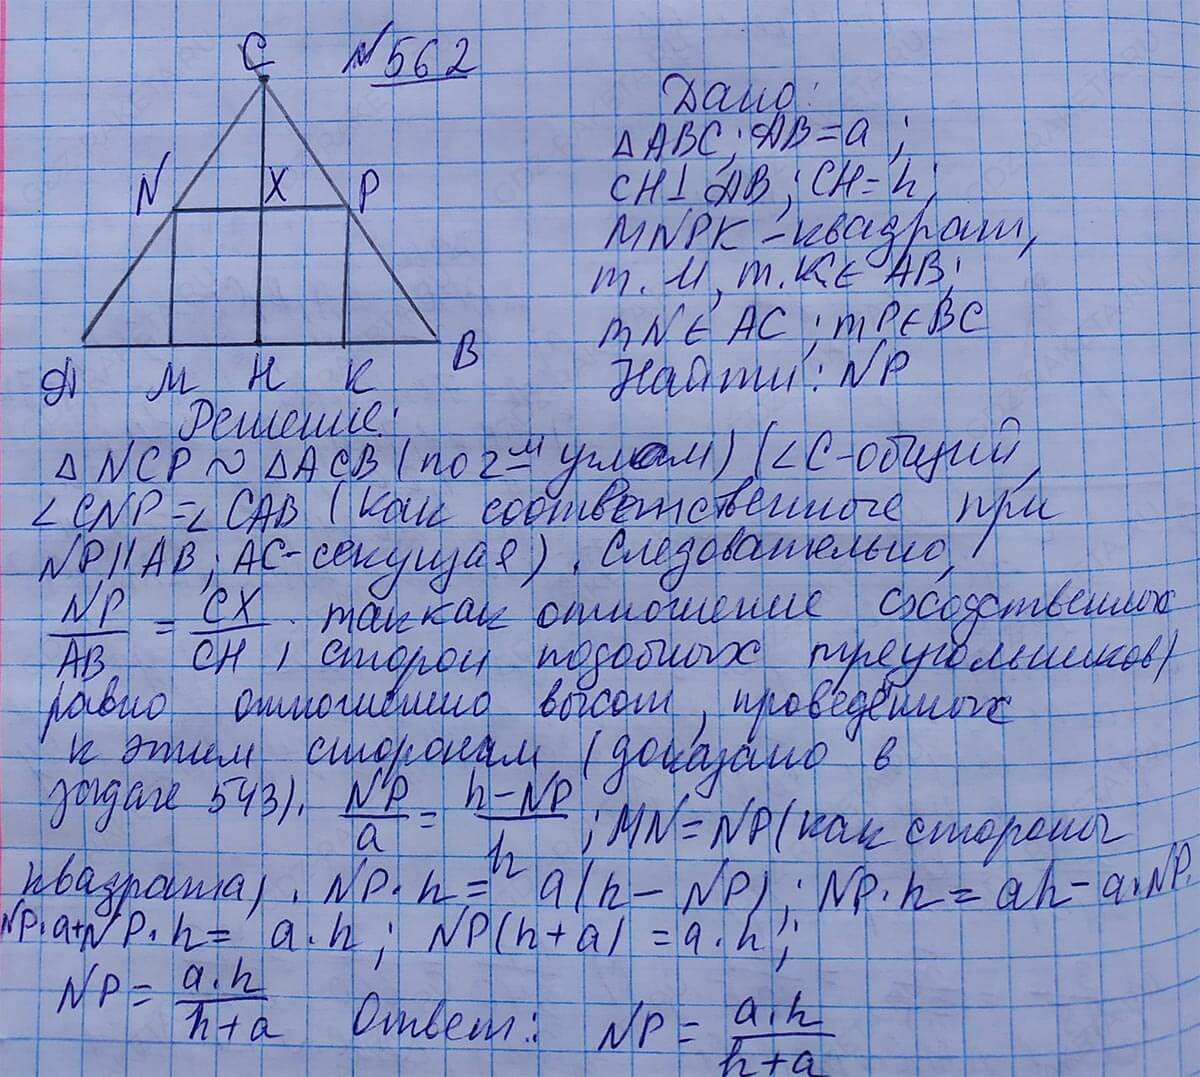 C
№562
N
X
P
A
M
H
K
B
Дано:
△ABC; AB=a;
CH⊥AB; CH=h;
MNPK-квадрат,
т. M, т. K∈ AB;
тN∈ AC; тP∈BC
Найти: NP
Решение:
△NCP~△ACB (по 2-м углам) (∠C-общий,
∠CNP=∠CAB (как соответственные при
NP||AB; AC-секущая). Следовательно,
NP/AB = CX/CH, так как отношение сходственных
сторон подобных треугольников)
равно отношению высот, проведённых
к этим сторонам (доказано в
задаче 543). NP/a = h-NP/h; MN=NP(как стороны
квадрата). NP·h= a(h-NP); NP·h=ah-a·NP.
NP·a+NP·h= a·h; NP(h+a)=a·h;
NP= a·h/h+a Ответ: NP= a·h/h+a